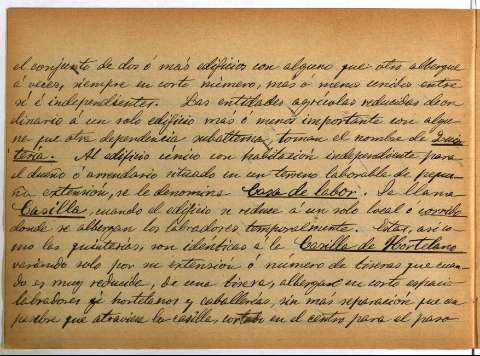 el conjunto de dos ó más edificios con alguno que otro albergue
á veces, siempre en corto número, más ó menos unidos entre
sí é independientes. Las entidades agrícolas reducidas de or
dinario á un solo edificio más ó menos importante con algu
na que otra dependencia subalterna, toman el nombre de Quin
tería. Al edificio único con habitación independiente para
el dueño ó arrendatario situado en un terreno laborable de peque
ña extensión, se le denomina Casa de labor. Se llama
Casilla, cuando el edificio se reduce á un solo local ó corrido
donde se albergan los labradores temporalmente. Estas, así co
mo las quinterías, son idénticas á la Casilla de Hortelano
variando solo por su extensión ó número de tiseras que cuan
do es muy reducida, de una tisera, albergase en corto espacio
labradores ú hortelanos y caballerías, sin más separación que un
pesebre que atraviesa la casilla, cortado en el centro para el paso